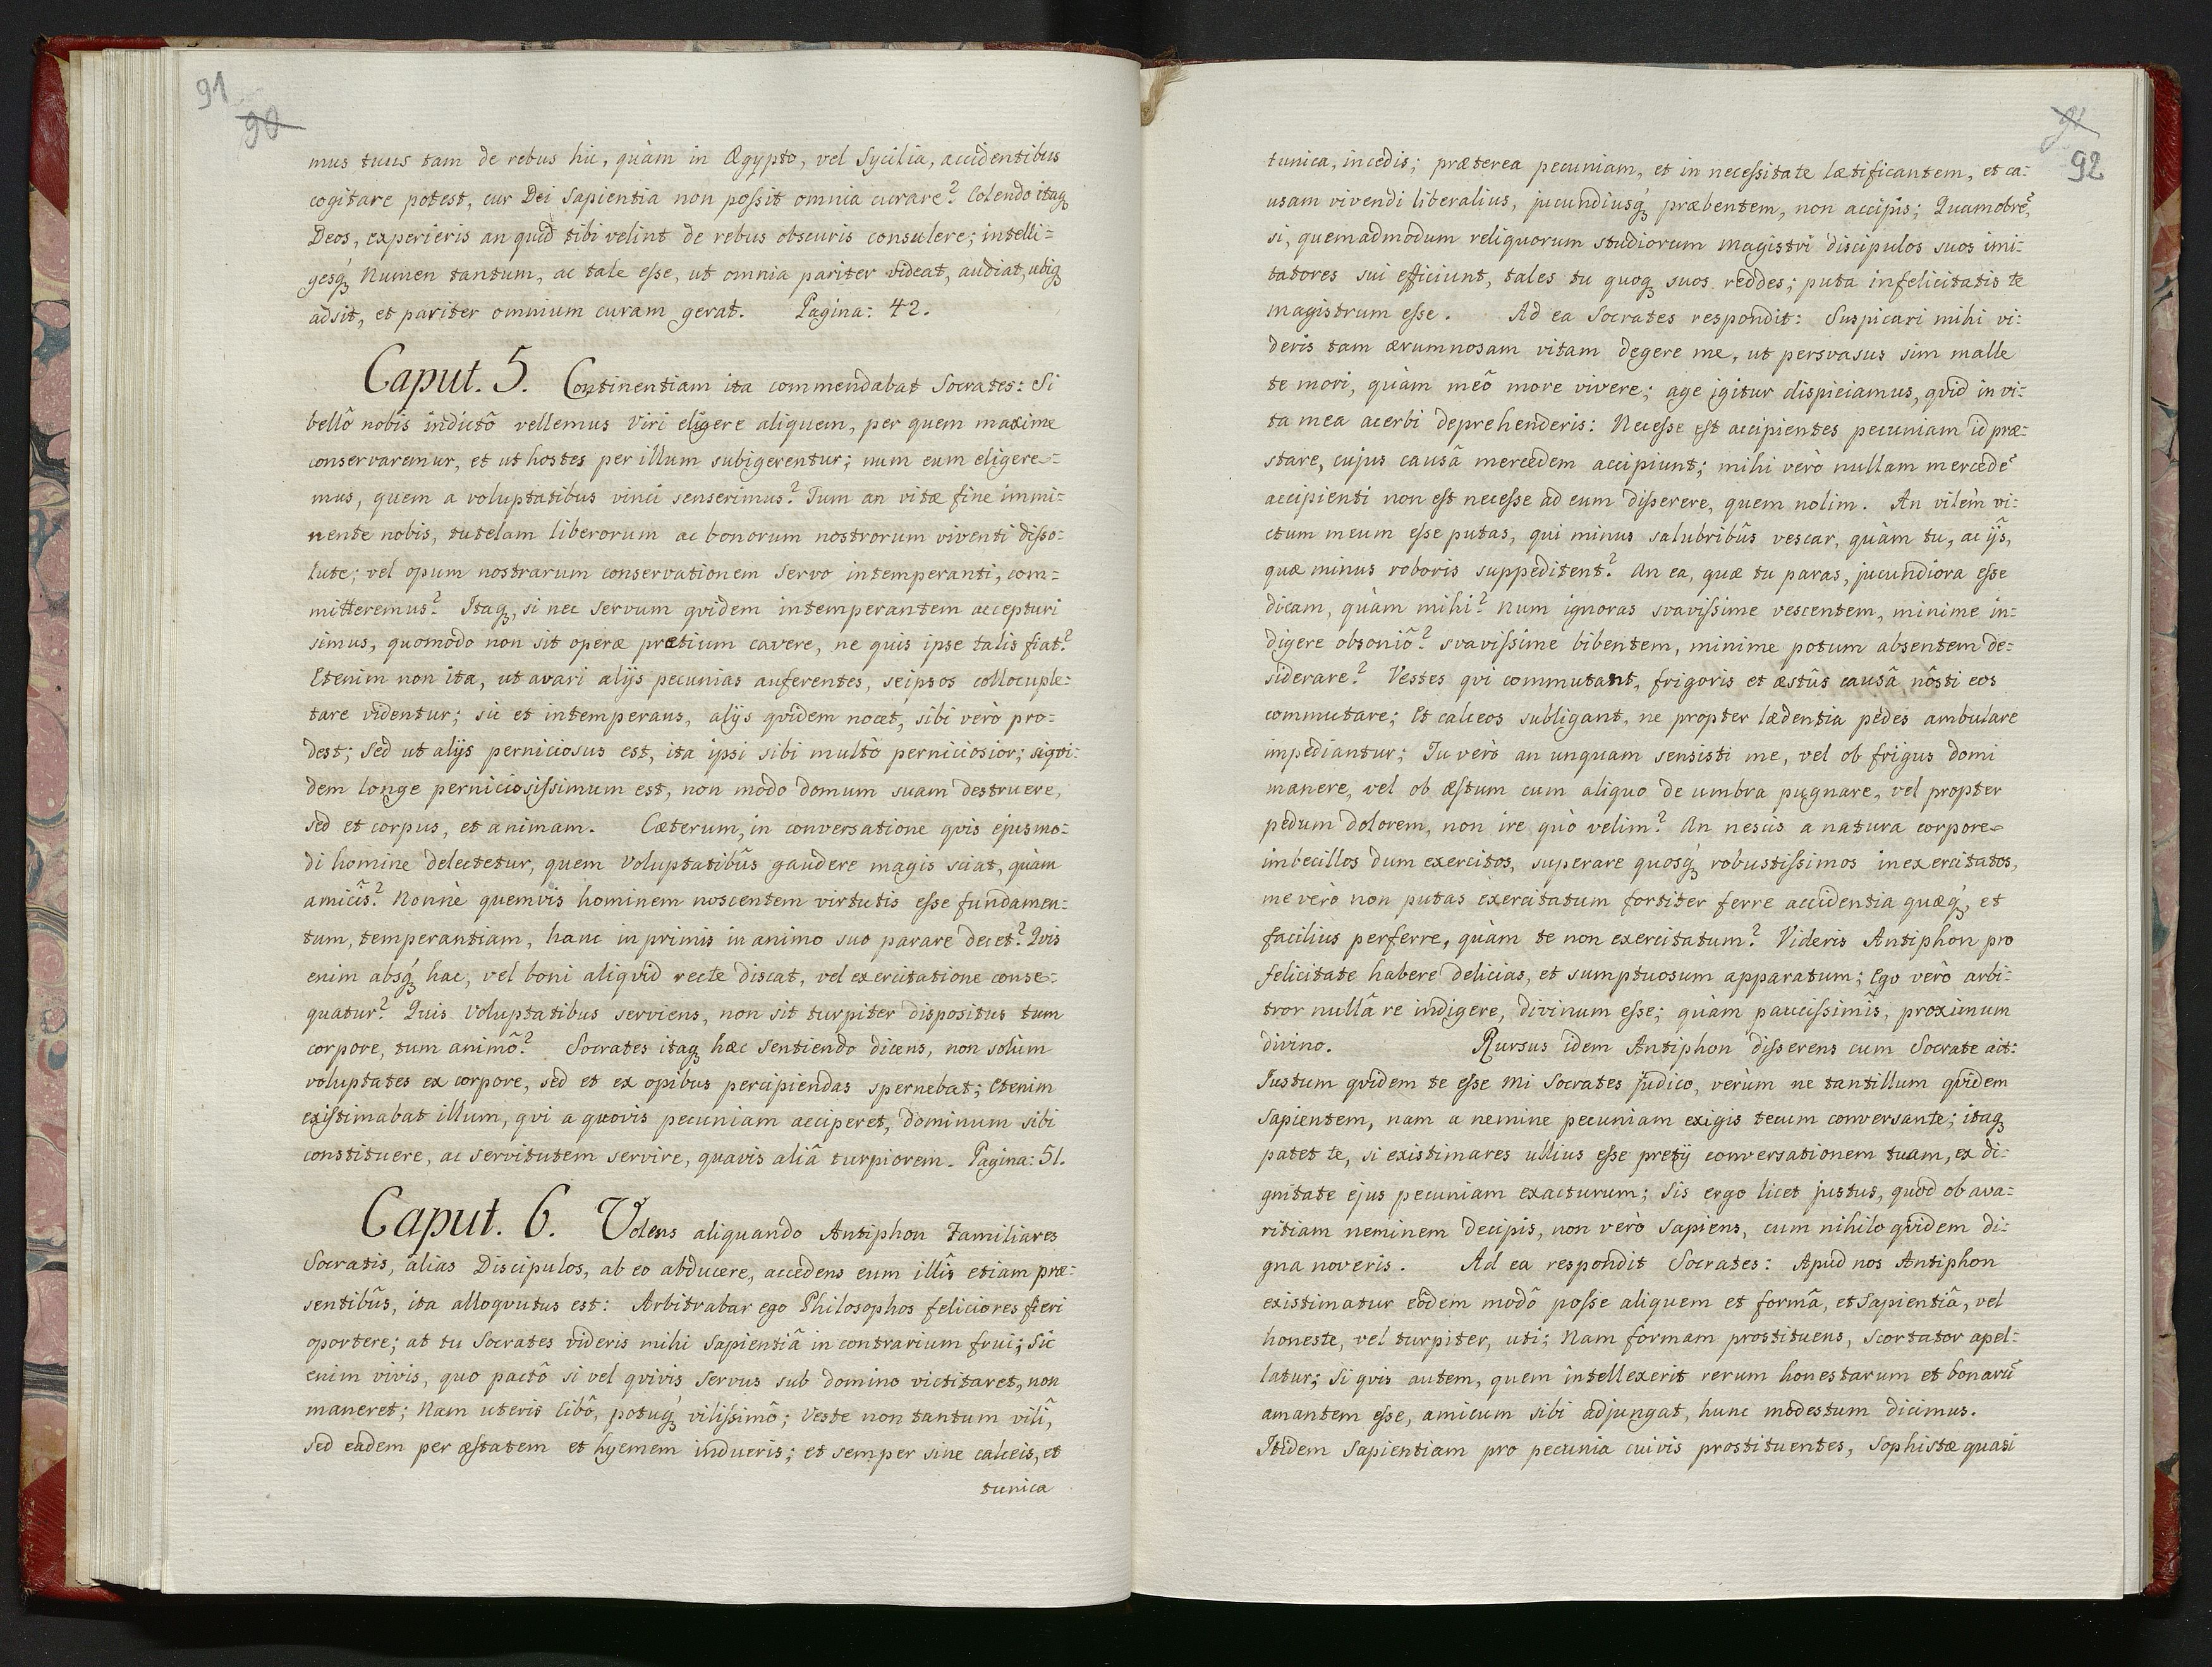 91
90
mus tuus tam de rebus hic, quàm in Ægypto, vel Sycilia, accidentibus
cogitare potest, cur Dei Sapientia non possit omnia curare? Colendo itaqꝫ
Deos, experieris an quid tibi velint de rebus obscuris consulere; intelli=
gesqꝫ Numen tantum, ac tale esse, ut omnia pariter videat, audiat, ubiqꝫ
adsit, et pariter omnium curam gerat. Pagina: 42.
Caput. 5. Continentiam ita commendabat Socrates: Si
bellô nobis indictô vellemus Viri eligere aliquem, per quem maxime
conservaremur, et ut hostes per illum subigerentur; num eum eligere=
mus, quem a voluptatibus vinci senserimus? Tum an vitæ fine immi=
nente nobis, tutelam liberorum ac bonorum nostrorum viventi disso=
lute; vel opum nostrarum conservationem servo intemperanti, com=
mitteremus? Itaqꝫ, si nec servum qvidem intemperantem accepturi
simus, quomodo non sit operæ pretium cavere, ne quis ipse talis fiat?
Etenim non ita, ut avari alijs pecunias auferentes, seipsos collocuple=
tare videntur; sic et intemperans, alijs qvidem nocet, sibi verò pro=
dest; sed ut alijs perniciosus est, ita ipsi sibi multò perniciosior; siqvi=
dem longe perniciosissimum est, non modo domum suam destruere,
sed et corpus, et animam. Cæterum, in conversatione qvis ejusmo=
di homine delectetur, quem voluptatibûs gaudere magis sciat, quàm
amicîs? Nonnè quemvis hominem noscentem virtutis esse fundamen=
tum, temperantiam, hanc inprimis in animo suo parare decet? Qvis
enim absqꝫ hac, vel boni aliqvid recte discat, vel exercitatione conse=
quatur? Quis voluptatibus serviens, non sit turpiter dispositus tum
corpore, tum animô? Socrates itaqꝫ hæc sentiendo dicens, non solùm
voluptates ex corpore, sed et ex opibus percipiendas spernebat; Etenim
existimabat illum, qvi a quovis pecuniam acciperet, dominum sibi
constituere, ac servitutem servire, quavis aliâ turpiorem. Pagina: 51.
Caput. 6. Volens aliquando Antiphon Familiares
Socratis, alias Discipulos, ab eo abducere, accedens eum illîs etiam præ=
sentibûs, ita alloqvutus est: Arbitrabar ego Philosophos feliciores fieri
oportere; at tu Socrates videris mihi sapientiâ in contrarium frui; Sic
enim vivis, quo pactô si vel qvivis servus sub domino victitaret, non
maneret; Nam uteris Cibô, potuqꝫ vilissimô; Veste non tantum vilî,
sed eadem per æstatem et hyemem indueris; et semper sine calceis, et
tunica
91
92
tunica, incedis; præterea pecuniam, et in necessitate lætificantem, et ca=
usam vivendi liberalius, jucundiusqꝫ præbentem, non accipis; Quamobrē,
si, quemadmodum reliquorum studiorum magistri discipulos suos imi=
tatores sui efficiunt, tales tu quoqꝫ suos reddes; puta infelicitatis te
magistrum esse. Ad ea Socrates respondit: Suspicari mihi vi=
deris tam ærumnosam vitam degere me, ut persvasus sim malle
te mori, quàm meô more vivere; age igitur dispiciamus, qvid in vi=
ta mea acerbi deprehenderis: Necesse est accipientes pecuniam id præ=
stare, cujus causâ mercedem accipiunt; mihi verò nullam mercedē
accipienti non est necesse ad eum disserere, quem nolim. An vilem vi=
ctum meum esse putas, qui minus salubribûs vescar, quàm tu, ac ijs,
quæ minus roboris suppeditent? An ea, quæ tu paras, jucundiora esse
dicam, quàm mihi? Num ignoras svavissime vescentem, minime in=
digere obsoniô? svavissime bibentem, minime potum absentem de=
siderare? Vestes qvi commutant, frigoris et æstûs causâ, nôsti eos
commutare; Et calceos subligant, ne propter lædentia pedes ambulare
impediantur; Tu verò an unquam sensisti me, vel ob frigus domi
manere, vel ob æstum cum aliquo de umbra pugnare, vel propter
pedum dolorem, non ire quò velim? An nescis a natura corpore
imbecillos dum exercitos, superare quosqꝫ robustissimos inexercitatos,
me verò non putas exercitatum fortiter ferre accidentia quæqꝫ, et
facilius perferre, quàm te non exercitatum? Videris Antiphon pro
felicitate habere delicias, et sumptuosum apparatum; Ego verò arbi=
tror nullâ re indigere, divinum esse; quàm paucissimîs, proximum
divino. Rursus idem Antiphon disserens cum Socrate ait:
Justum qvidem te esse mi Socrates judico, verùm ne tantillum qvidem
sapientem, nam a nemine pecuniam exigis tecum conversante; itaqꝫ
patet te, si existimares ullius esse pretij conversationem tuam, ex di=
gnitate ejus pecuniam exacturum; Sis ergo licet justus, quòd ob ava=
ritiam neminem decipis, non verò sapiens, cum nihilo qvidem di=
gna noveris. Ad ea respondit Socrates: Apud nos Antiphon
existimatur eôdem modô posse aliquem et formâ, et Sapientiâ, vel
honeste, vel turpiter, uti; Nam formam prostituens, Scortator apel=
latur; Si qvis autem, quem intellexerit rerum honestarum et bonarū
amantem esse, amicum sibi adjungat, hunc modestum dicimus.
Itidem Sapientiam pro pecunia cuivis prostituentes, Sophistæ quasi